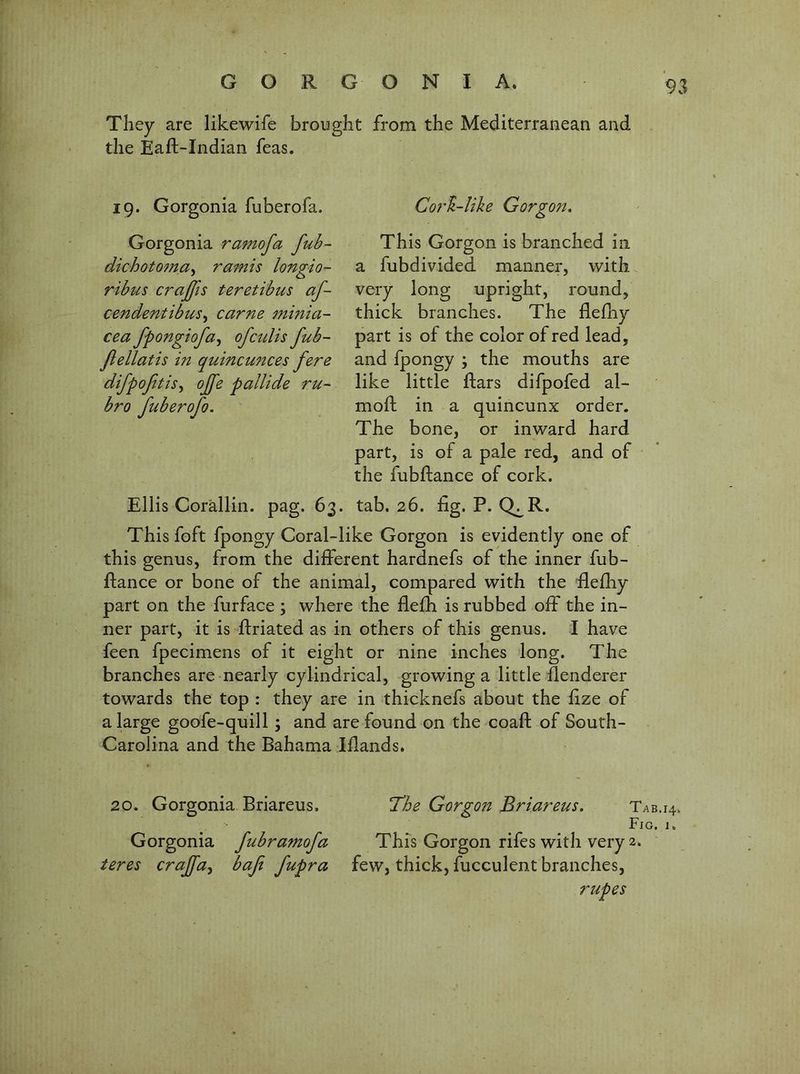 GORGONIA. 93
They are likewiſe brought from the Mediterranean and
the Eaſt-Indian ſeas.
19. Gorgonia ſuberoſa.
Gorgonia ramoſa ſub-
dichotoma, ramis longio-
ribus craſſis teretibus aſ-
cendentibus, carne minia-
cea ſpongioſa, oſculis ſub-
ſtellatis in quincunces fere
diſpoſitis, oſſe pallide ru-
bro ſuberoſo.
Cork-like Gorgon.
This Gorgon is branched in
a ſubdivided manner, with
very long upright, round,
thick branches. The fleſhy
part is of the color of red lead,
and ſpongy ; the mouths are
like little ſtars diſpoſed al-
moſt in a quincunx order.
The bone, or inward hard
part, is of a pale red, and of
the ſubſtance of cork.
Ellis Corallin. pag. 63. tab. 26. fig. P. Q. R.
This ſoft ſpongy Coral-like Gorgon is evidently one of
this genus, from the different hardneſs of the inner ſub-
ſtance or bone of the animal, compared with the fleſhy
part on the ſurface ; where the fleſh is rubbed off the in-
ner part, it is ſtriated as in others of this genus. I have
ſeen ſpecimens of it eight or nine inches long. The
branches are nearly cylindrical, growing a little ſlenderer
towards the top : they are in thickneſs about the ſize of
a large gooſe-quill ; and are found on the coaſt of South-
Carolina and the Bahama Iſlands.
20. Gorgonia Briareus.
Gorgonia ſubramoſa
teres craſſa, baſi ſupra
The Gorgon Briareus. TAB.14.
FIG. 1.
This Gorgon riſes with very 2.
few, thick, ſucculent branches,
rupes